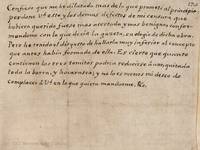 Confieso que me he dilatado mas de lo que prometi al principio
perdone Vd este y los demas defectos de mi censura, que
hubiera querido fuese mas acertada y mas benigna, confor-
mandome con lo que decia la gazeta, en elogio de dicha obra.
Pero he tenido el disgusto de hallarla muy inferior al concepto
que antes habia formado de ella. Es cierto que quanto
continuen los tomitos podria reducirse à una quartilla
toda la barra, y horas; y no lo es menos mi deseo de
complacer à Vd en lo que guste mandarme. &c.